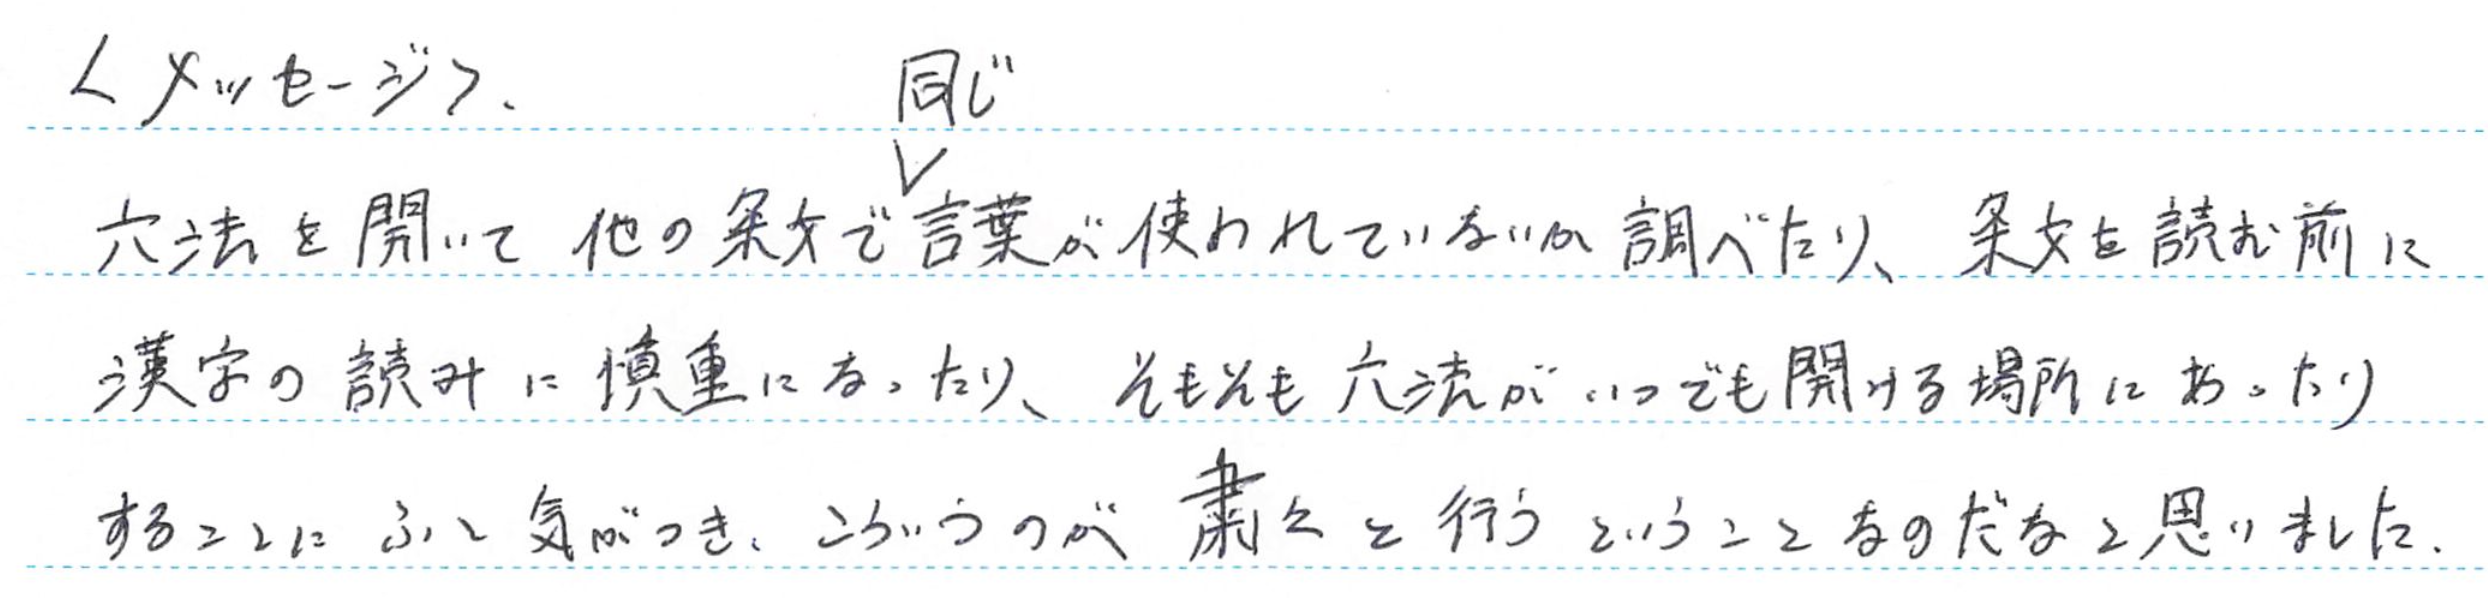 <メッセージ>、
同じ
六法を開いて他の条文で言葉が使われていないか調べたり、条文を読む前に
漢字の読みに慎重になったり、そもそも六法がいつでも開ける場所にあったり
することにふと気がつき、こういうのが粛々と行うということなのだなと思いました。